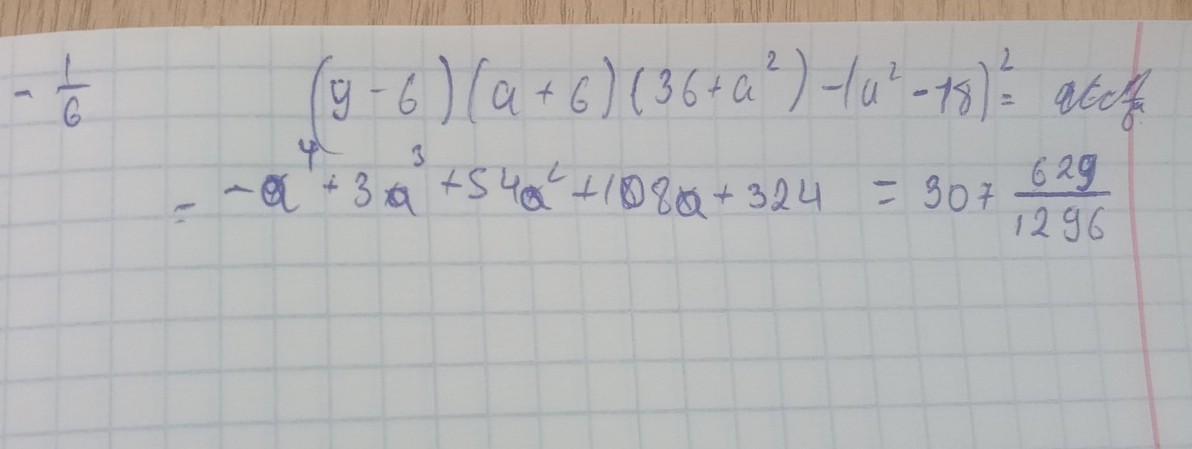 - 1/6 (y - 6)(a + 6)(36 + a²) - (a² - 18)² =
= -a⁴ + 3a³ + 54a² + 108a + 324 = 307 629/1296